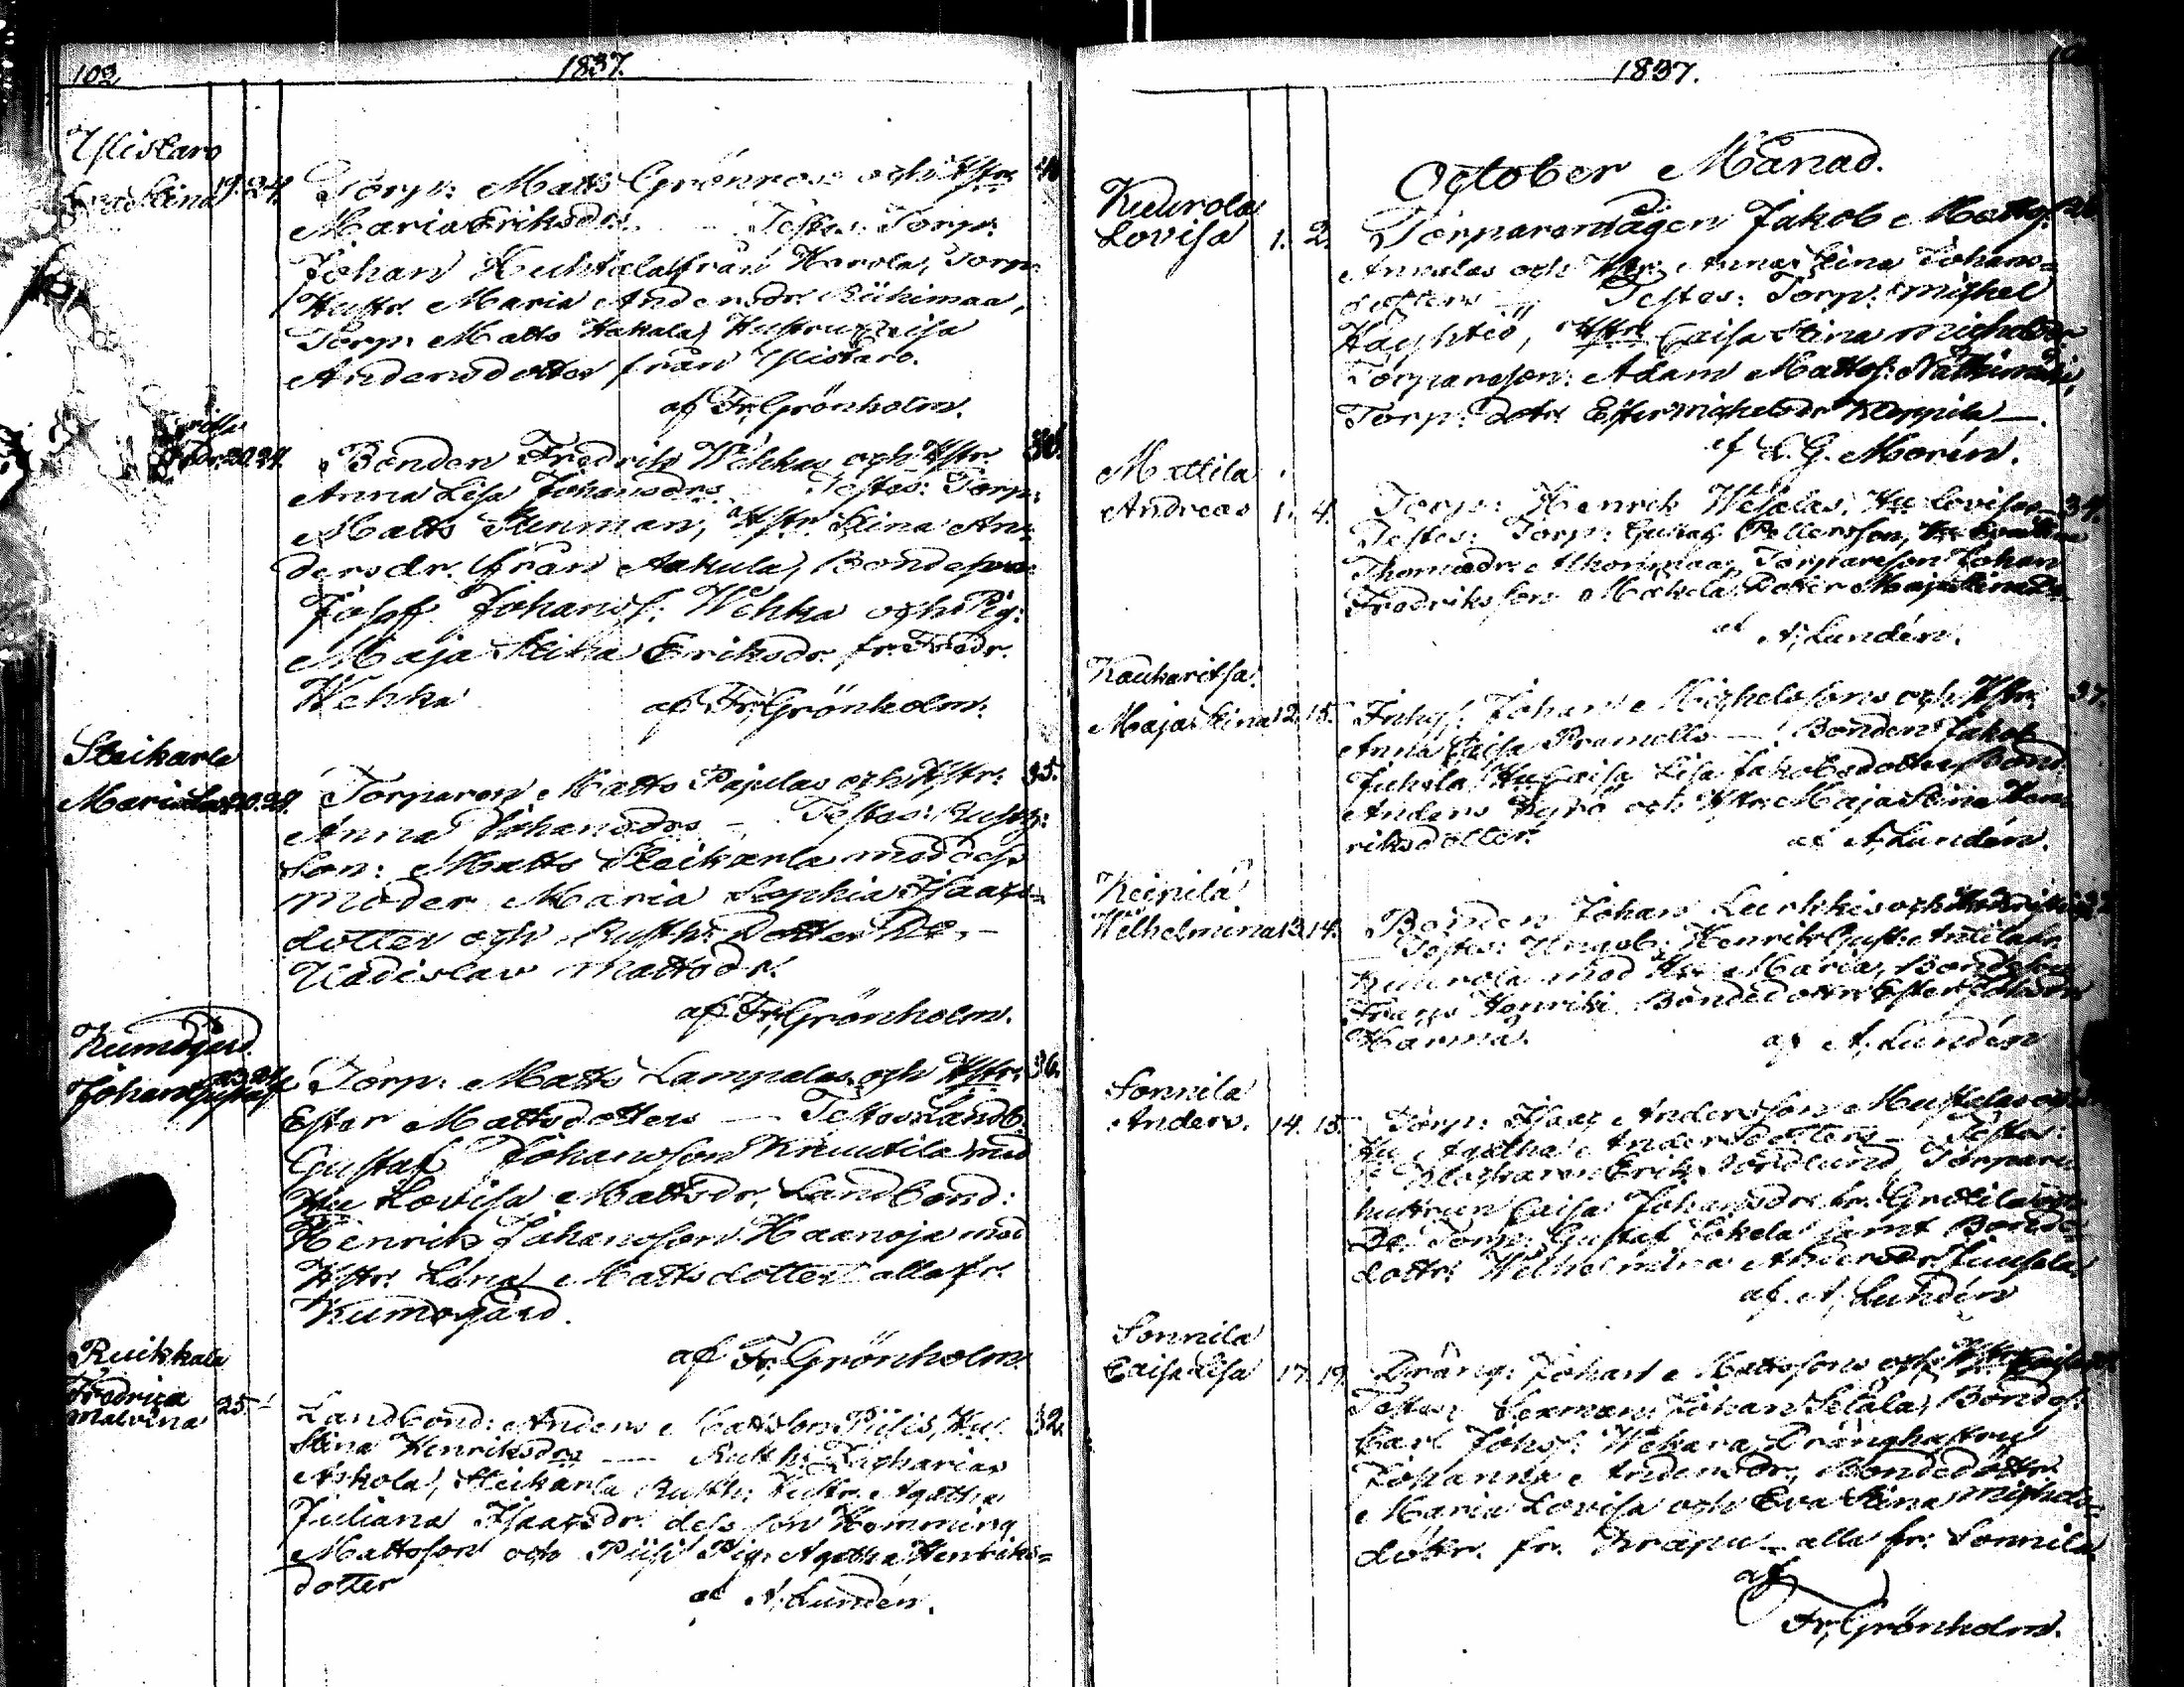 102
1837.
Ylistaro
Eva Stina 19. 24. Torp: Matts Grönroos och Hstr:
Maria Eriksdr. — Testes: Torp:
Johan Huhtala från Harola, Torp:
Hustr. Maria Andersdr. Riihimaa,
Torp: Matts Hakala, Hustru Caisa
Andersdotter från Ylistaro.
af Fr, Grönholm.
Fredr. 20. 24. Bonden Fredrik Wehkas och Hstr. 30.
Anna Lisa Johansdrs Testes: Torp:
Matts Stenman, Hstr. Stina An-
dersdr. från Aakula, Bondeson
Josef Johansf: Wehka och Pig:
Maja Stina Eriksdr. fr. Fredr.
Wehka af Fr, Grönholm.
Steikarla
Maria 20. 24. Torparen Matts Pajulas och Hstr: 35.
Anna Johansdrs — Testes: Rusth:
Son: Matts Steikarla med dess
moder Maria Sophia Isaacs-
dotter och Rusth: Dotter De. —
Uladislava Mattsdr.
af Fr, Grönholm.
Kumogård.
Johan Gustaf 23. 24. Torp: Matts Lampalas och Hstr: 36.
Ester Mattsdotters — Testes: Landb.
Gustaf Johansson Knuutila med
Hu Lovisa Mattsdr, Landbond:
Henrik Johansson Haanoja med
Hstr. Lena Mattsdotter alla fr.
Kumogård.
af Fr, Grönholm.
Ruikkala
Fredrica
Malvina 25. Landbond: Anders Mattson Piisis, Hu. 32.
Stina Henriksdrs — Rusth: Zacharias
Askola, Steikarla Rusth: Hustr. Agatha
Juliana Isaacsdr. dess son Hemming
Mattsson och Piisi Pig: Agatha Henriks-
dotter af A, Lundén.
1837.
October Månad.
Kuurola
Lovisa 1. 2. Torparemågen Jakob Mattsf.
Annalas och Hstr: Anna Stina Johans-
dotters — Testes: Torp: Michel
Häyhtiö, Hstr Caisa Stina Michelsdr
Torpareson: Adam Mattsf:
Torp: dotr. Ester Michelsdr Keppila —.
af C. G. Morén.
Mattila
Andreas 1. 4. Torp: Henrik Wesalas, Hu Lovisas 34.
Testes: Torp: Gustaf Pettersson, Hu Eva Stina
Thomasdr Ahonmaa, Torpareson Johan
Fredriksson Mäkela, Dotter Maja Stina De.
af A, Lundén.
Kauharitsa
Maja Stina 12. 15. Inhys: Johan Michelssons och Hstr: 37.
Anna Caisa Pramells — Bonden Jakob
Juhola, Hu Caisa Lisa Jakobsdotter, Bond
Anders Kyrö och Hstr: Maja Stina Hen-
riksdotter. af A, Lundén.
Keinilä
Wilhelmina 13. 14. Bonden Johan Leukkis och
Testes: Ungsb: Henrik Gust: Anttila fr
Kuurola med Hu Maria, Bondeson
Frans Henriki Bondedottr: Ester Johsdr
Harma. af A, Lundén
Sonnila
Anders. 14. 15. Torp: Isaac Andersson Mustelas och
Hu Agatha Andersdotters — Testes:
Klockaren Erik Nordlund, Torpare-
hustrun Caisa Johansdr. fr. Grötila och
De: Torp: Gustaf Eskela samt Bonde-
dottr. Wilhelmina Andersdr Juusela
af A, Lundén
Sonnila
Caisa Lisa 17. 19. Dräng: Johan Mattsons och Hstr. Caisa
Testes: Sexman: Johan Setälä, Bondes:
Carl Johsf: Wehara Dränghustru
Johanna Andersdr, Bondedottr.
Maria Lovisa och Eva Stina Michels-
döttr. fr. Krapu — alla fr. Sonnila.
af
Fr, Grönholm.